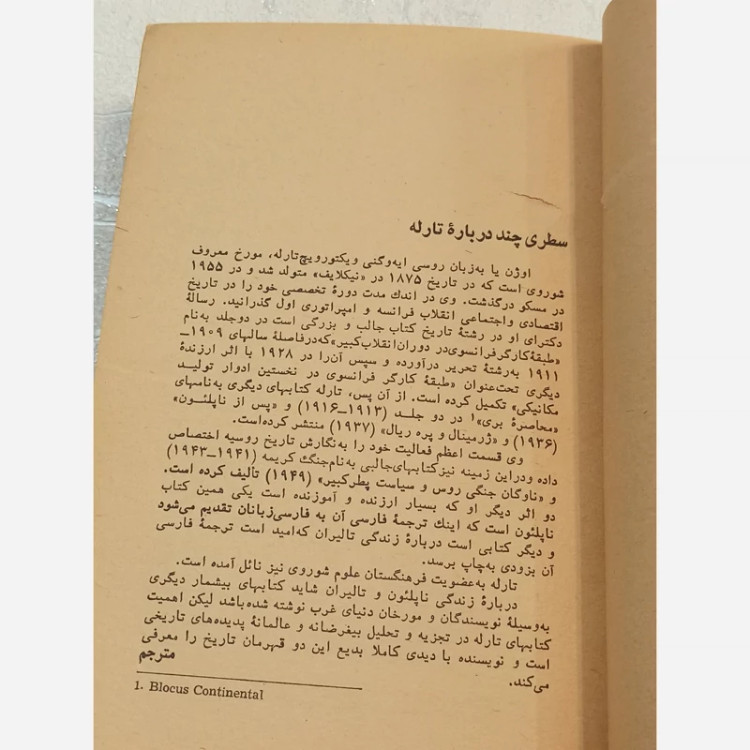 سطری چند دربارهٔ تارله
اوژن یا به‌زبان روسی ایه‌وگنی ویکتورویچ‌تارله، مورخ معروف
شوروی است که در تاریخ ۱۸۷۵ در «نیکلایف» متولد شد و در ۱۹۵۵
در مسکو درگذشت. وی در اندك مدت دورهٔ تخصصی خود را در تاریخ
اقتصادی واجتماعی انقلاب فرانسه و امپراتوری اول گذرانید. رسالهٔ
دکترای او در رشتهٔ تاریخ کتاب جالب و بزرگی است در دوجلد به‌نام
«طبقهٔ‌کارگرفرانسوی‌در دوران‌انقلاب‌کبیر»که‌درفاصلهٔ سالهای ۱۹۰۹ــ
۱۹۱۱ به‌رشتهٔ تحریر درآورده و سپس آن‌را در ۱۹۲۸ با اثر ارزندهٔ
دیگری تحت‌عنوان «طبقهٔ کارگر فرانسوی در نخستین ادوار تولید
مکانیکی» تکمیل کرده است. از آن پس، تارله کتابهای دیگری به‌نامهای
«محاصرهٔ بری»۱ در دو جلد (۱۹۱۳ــ۱۹۱۶) و «پس از ناپلئون»
(۱۹۳۶) و «ژرمینال و پره ریال» (۱۹۳۷) منتشر کرده‌است.
وی قسمت اعظم فعالیت خود را به‌نگارش تاریخ روسیه اختصاص
داده ودراین زمینه نیز کتابهای‌جالبی به‌نام‌جنگ کریمه (۱۹۴۱ــ۱۹۴۳)
و «ناوگان جنگی روس و سیاست پطرکبیر» (۱۹۴۹) تألیف کرده است.
دو اثر دیگر او که بسیار ارزنده و آموزنده است یکی همین کتاب
ناپلئون است که اینك ترجمهٔ فارسی آن به فارسی‌زبانان تقدیم می‌شود
و دیگر کتابی است دربارهٔ زندگی تالیران که‌امید است ترجمهٔ فارسی
آن بزودی به‌چاپ برسد.
تارله به‌عضویت فرهنگستان علوم شوروی نیز نائل آمده است.
دربارهٔ زندگی ناپلئون و تالیران شاید کتابهای بیشمار دیگری
به‌وسیلهٔ نویسندگان و مورخان دنیای غرب نوشته شده‌باشد لیکن اهمیت
کتابهای تارله در تجزیه و تحلیل بیغرضانه و عالمانهٔ پدیده‌های تاریخی
است و نویسنده با دیدی کاملا بدیع این دو قهرمان تاریخ را معرفی
می‌کند.
مترجم
1. Blocus Continental